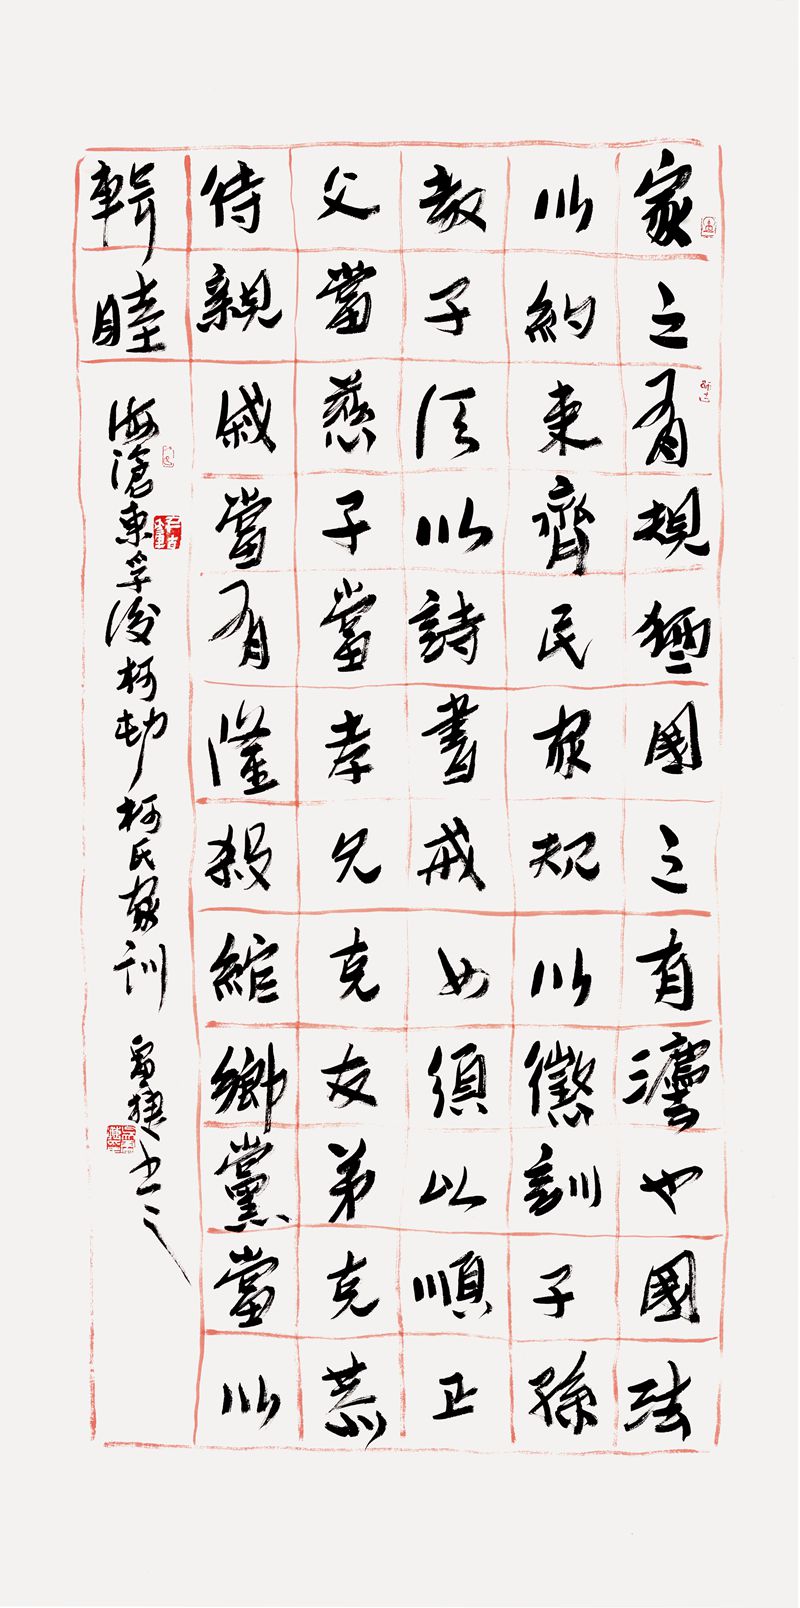 家之有規猶國之有灋也國法
以約束齊民家規以懲訓子孫
教子須以詩書戒女須以順正
父當慈子當孝兄克友弟克恭
待親戚當有謹殺綰鄉黨當以
輯睦
海滄東孚後柯村柯氏家訓
書之